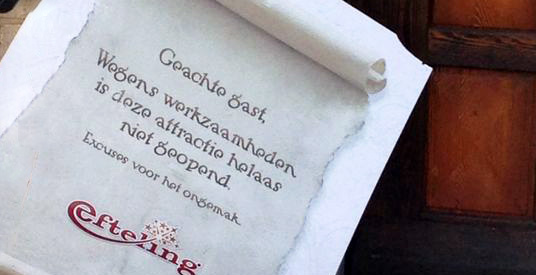 Geachte gast,
Wegens werkzaamheden
is deze attractie helaas
niet geopend.
Excuses voor het ongemak.
efteling